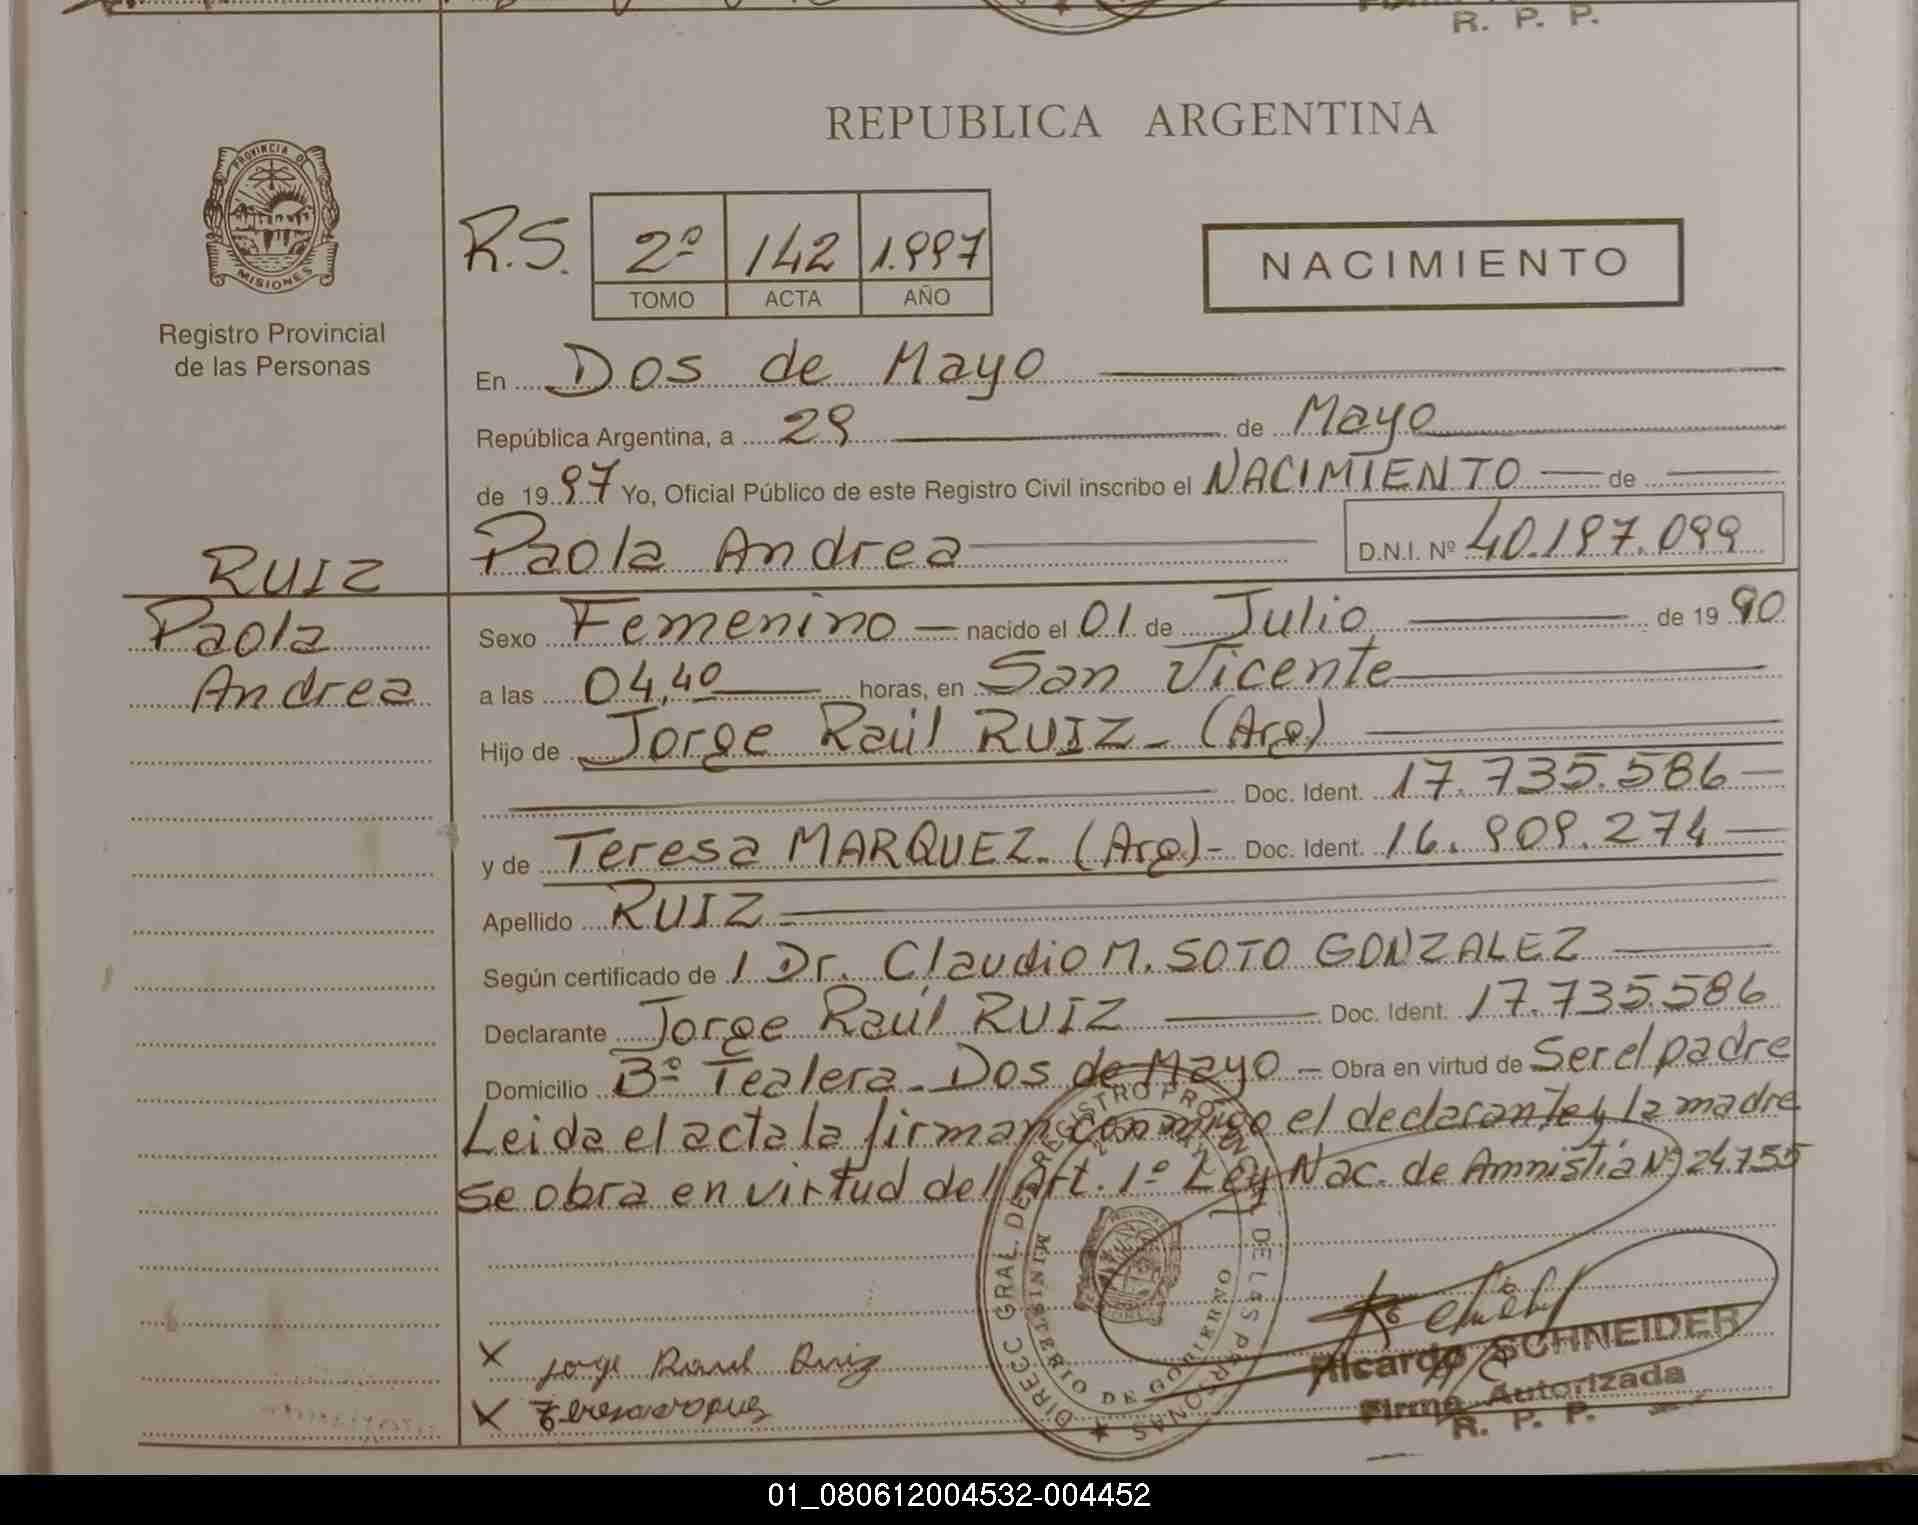 R. P. P.
REPUBLICA ARGENTINA
PROVINCIA DE
MISIONES
Registro Provincial
de las Personas
R.S.
2º 142 1.997
TOMO ACTA AÑO
NACIMIENTO
En Dos de Mayo
República Argentina, a 29 de Mayo
de 1997 Yo, Oficial Público de este Registro Civil inscribo el NACIMIENTO de
Paola Andrea D.N.I. Nº 40.197.099
RUIZ
Paola
Andrea
Sexo Femenino nacido el 01 de Julio de 1990
a las 04,40 horas, en San Vicente
Hijo de Jorge Raúl RUIZ- (Arg)
Doc. Ident. 17.735.586
y de Teresa MARQUEZ. (Arg)- Doc. Ident. 16.909.274
Apellido RUIZ
Según certificado de l Dr. Claudio M. SOTO GONZALEZ
Declarante Jorge Raúl RUIZ Doc. Ident. 17.735.586
Domicilio Bº Tealera-Dos de Mayo - Obra en virtud de Ser el padre
Leida el acta la firman conmigo el declarante y la madre
se obra en virtud del Art. 1º Ley Nac. de Amnistía Nº 24.755
DIRECC GRAL. DE REGISTRO PROVINCIAL DE LAS PERSONAS
MINISTERIO DE GOBIERNO
X Jorge Raul Ruiz
X
Ricardo SCHNEIDER
Firma Autorizada
R. P. P.
01_080612004532-004452